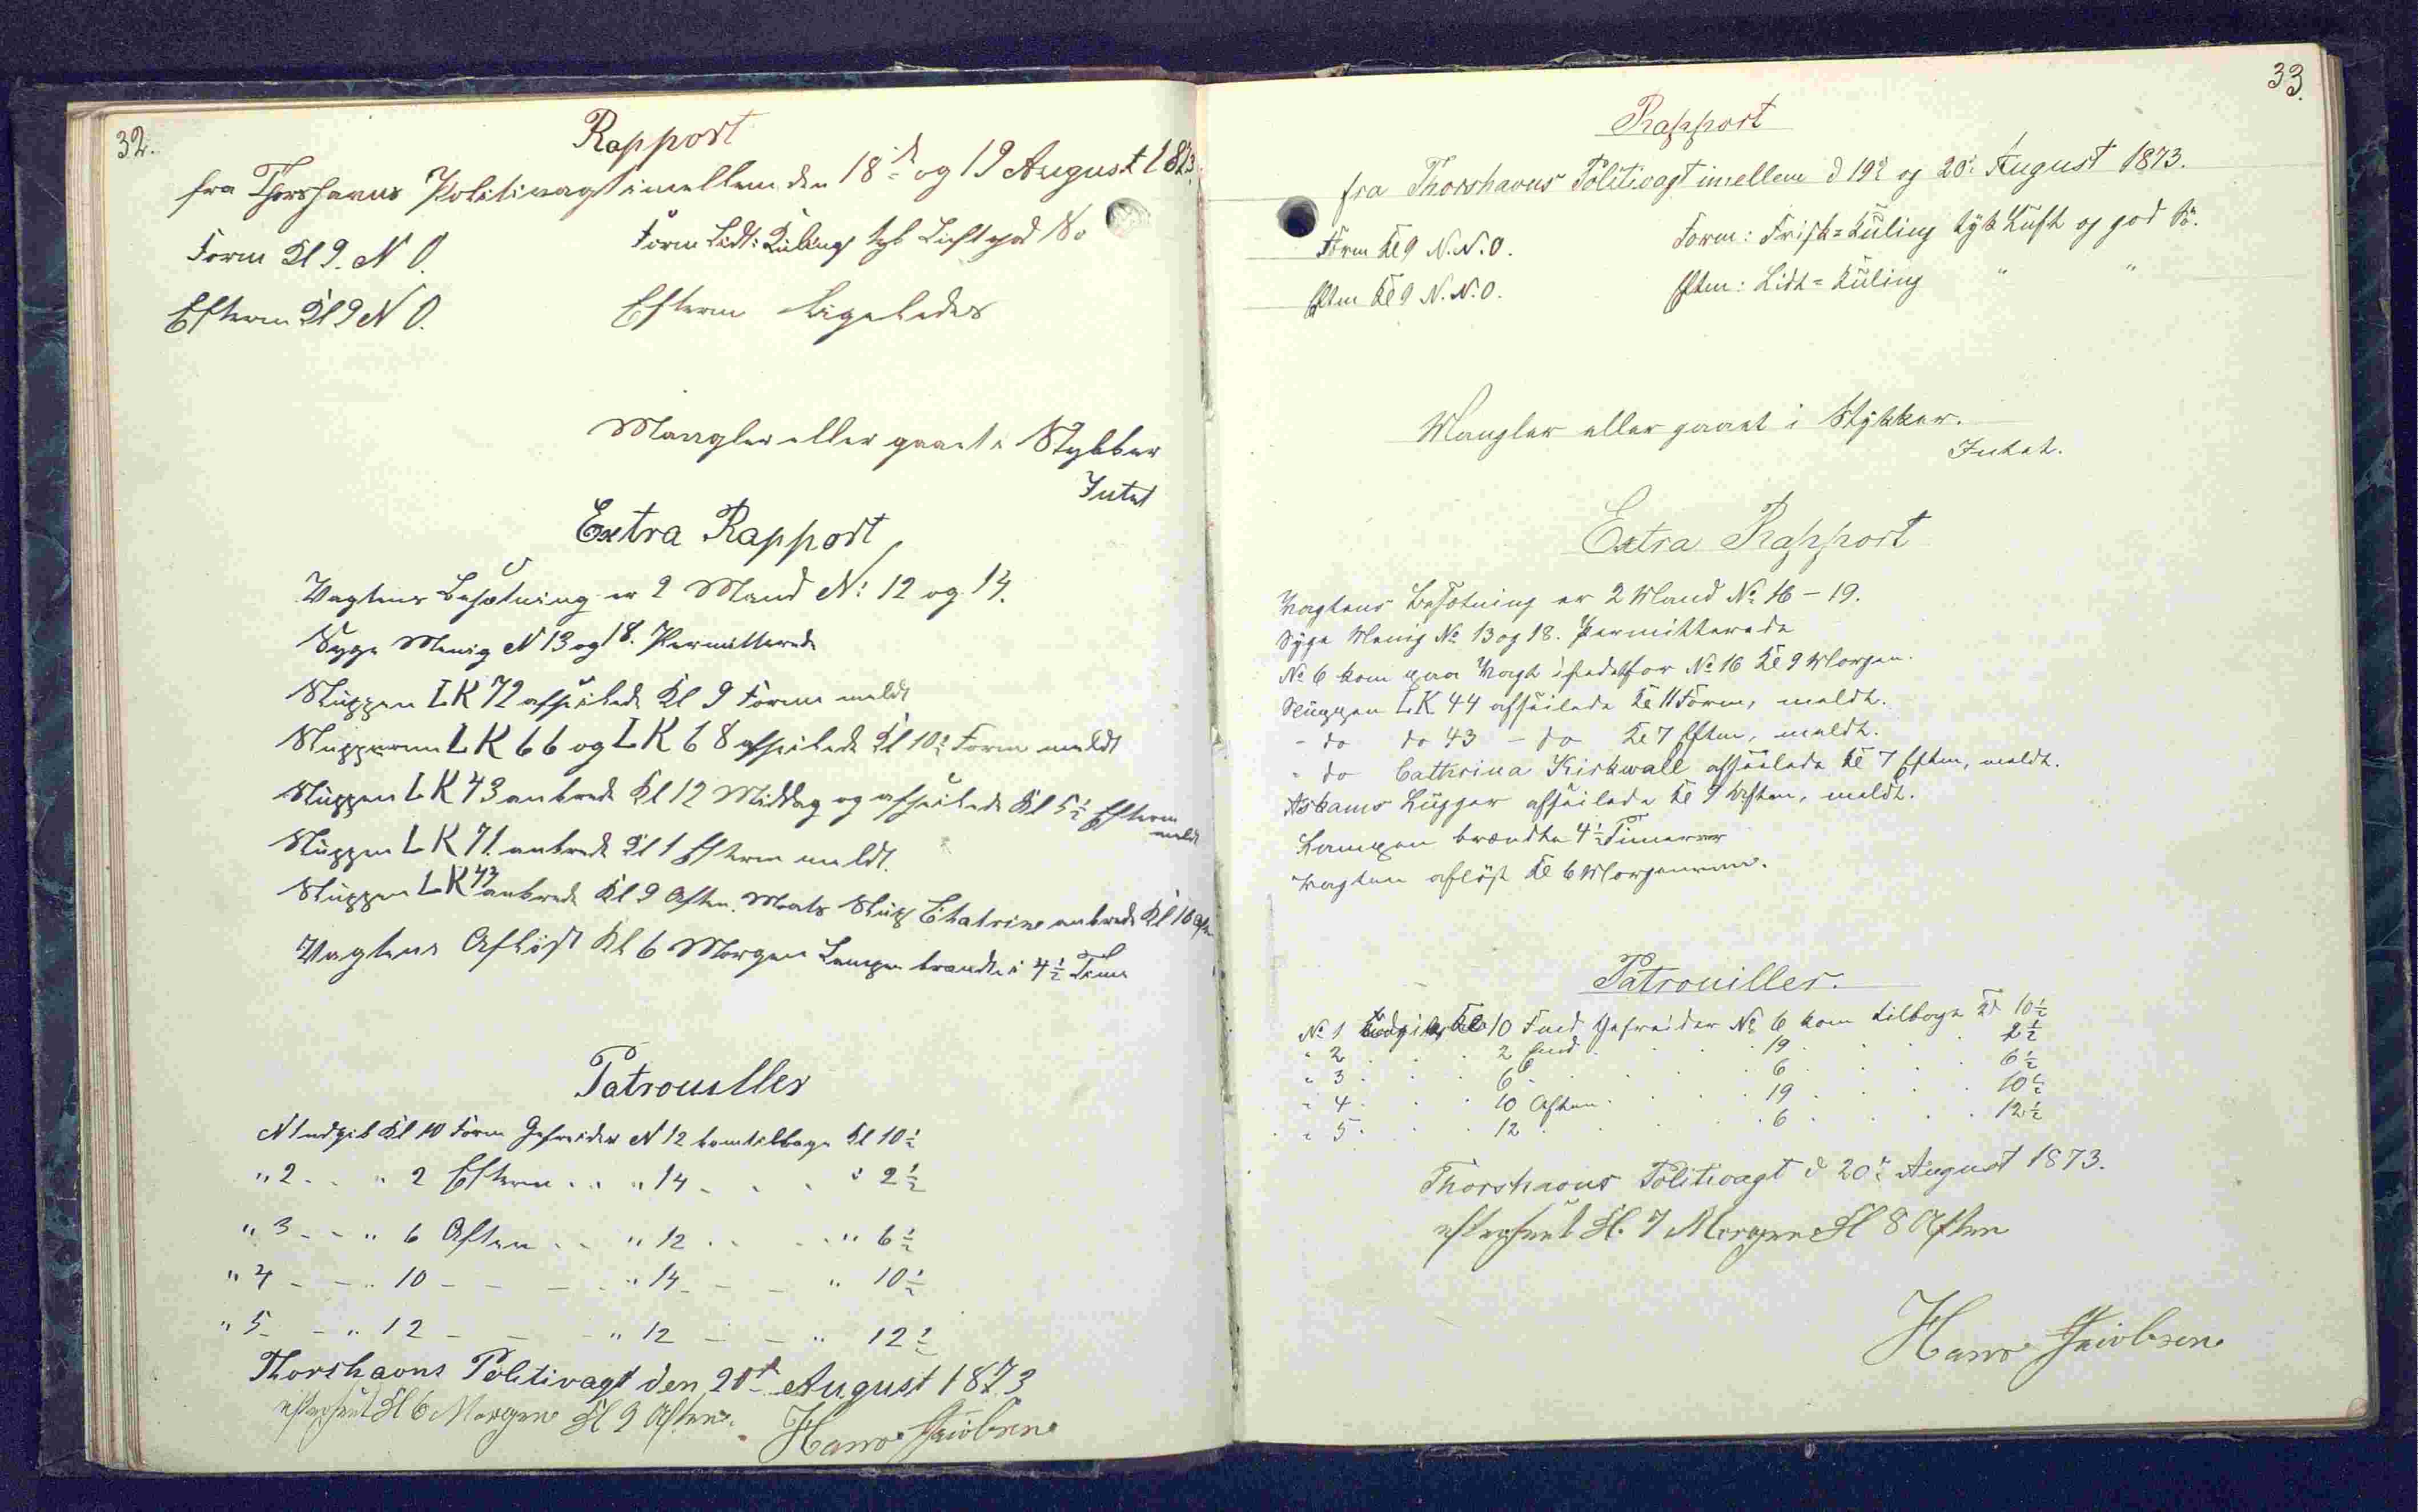 32.
Rapport
fra Thorshavns Politivagt imellem den 18de og 19 August 1873.
Form Kl 9. N O. Form Lidt: Kuling tyk Luft god So
Efterm Kl 9 N O. Efterm Ligeledes
Mangler eller gaaet i Stykker
Intet
Extra Rapport
Vagtens Besætning er 2 Mand N: 12 og 14.
Syge Menig N 13 og 18. Permitterede
Sluppen LK 72 afseilede Kl 9 Form meldt
Slupperne LK 66 og LK 68 afseilede Kl 10½ Form meldt
Sluppen LK 43 ankrede Kl 12 Middag og afseilede Kl 5½ Efterm
meldt
Sluppen LK 71. ankrede Kl 1 Efterm meldt.
Sluppen LK 43 ankrede Kl 9 Aften. Slup Chatrine ankrede Kl 10 Aften
Vagtens Afløst Kl 6 Morgen Lampen brændte i 4½ Time
Patrouiller
N 1 udgik Kl 10 Form Gefreider N 12 kom tilbage Kl 10½
" 2 - - " 2 Efterm - - " 14 - - - " 2½
" 3 - - " 6 Aften - - " 12 - - - " 6½
" 4 - - " 10 - - - " 14 - - " 10½
" 5 - - " 12 - - - " 12 - - " 12½
Thorshavns Politivagt den 20de August 1873
efterseet Kl 6 Morgen Kl 9 Aften.
Hans Jacobsen
33.
Rapport
fra Thorshavns Politivagt imellem d 19de og 20de August 1873.
Form Kl 9 N.N.O. Form: Frisk=Kuling tyk Luft og god Sö.
Eftm Kl 9 N.N.O. Eftm: Lidt=Kuling " "
Mangler eller gaaet i Stykker.
Intet.
Extra Rapport
Vagtens Besætning er 2 Mand No 16 - 19.
Syge Menig No 13 og 18. Permitterede
No 6 kom paa Vagt istedetfor No 16 Kl 9 Morgen.
Sluppen LK 44 afseilede Kl 11 Form, meldt.
- do do 43 - do Kl 7 Eftm, meldt.
- do Cathrina Kirkwall afseilede Kl 7 Eftm, meldt.
Askams Lugger afseilede Kl 9 Aften, meldt.
Lampen brændte 4½ Timer
Vagten afløst Kl 6 Morgenen.
Patrouiller.
No 1 Udgik Kl 10 Fmd Gefreider No 6 kom tilbage Kl 10½
" 2 . . . 2 Emd . . . 19 . . . 2½
" 3 . . . 6 . . . 6 . . . 6½
" 4 . . . 10 Aften . . . 19 . . . 10½
" 5 . . . 12 . . . 6 . . . 12½
Thorshavns Politivagt d 20de August 1873.
efterseet Kl. 7 Morgen Kl 8 Aften
Hans Jacobsen